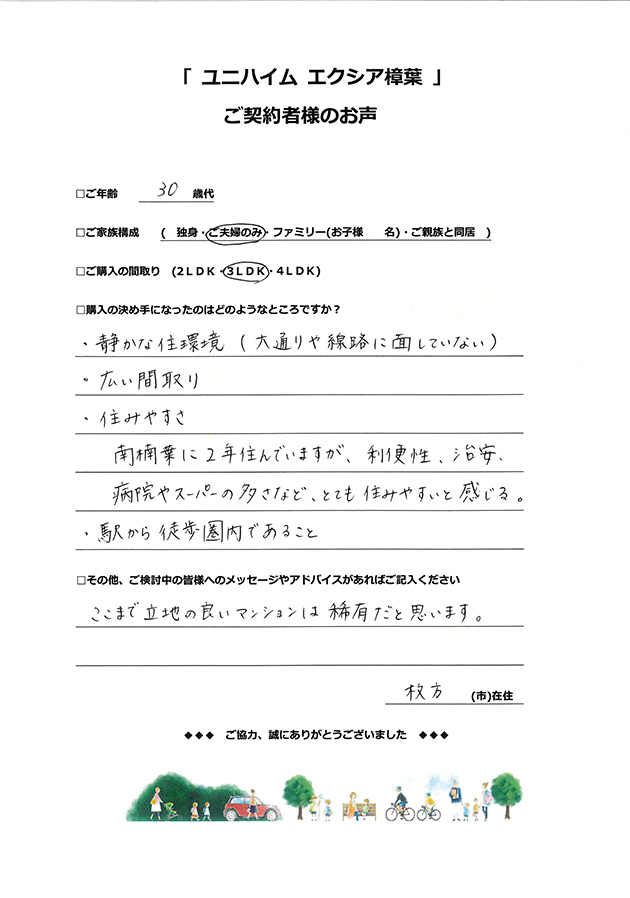 「 ユニハイム エクシア樟葉 」
ご契約者様のお声
□ご年齢 30 歳代
□ご家族構成 ( 独身・ご夫婦のみ・ファミリー(お子様 名)・ご親族と同居 )
□ご購入の間取り (2LDK・3LDK・4LDK)
□購入の決め手になったのはどのようなところですか？
・静かな住環境 (大通りや線路に面していない)
・広い間取り
・住みやすさ
南楠葉に2年住んでいますが、利便性、治安、
病院やスーパーの多さなど、とても住みやすいと感じる。
・駅から徒歩圏内であること
□その他、ご検討中の皆様へのメッセージやアドバイスがあればご記入ください
ここまで立地の良いマンションは稀有だと思います。
枚方 (市)在住
◆◆◆ ご協力、誠にありがとうございました ◆◆◆